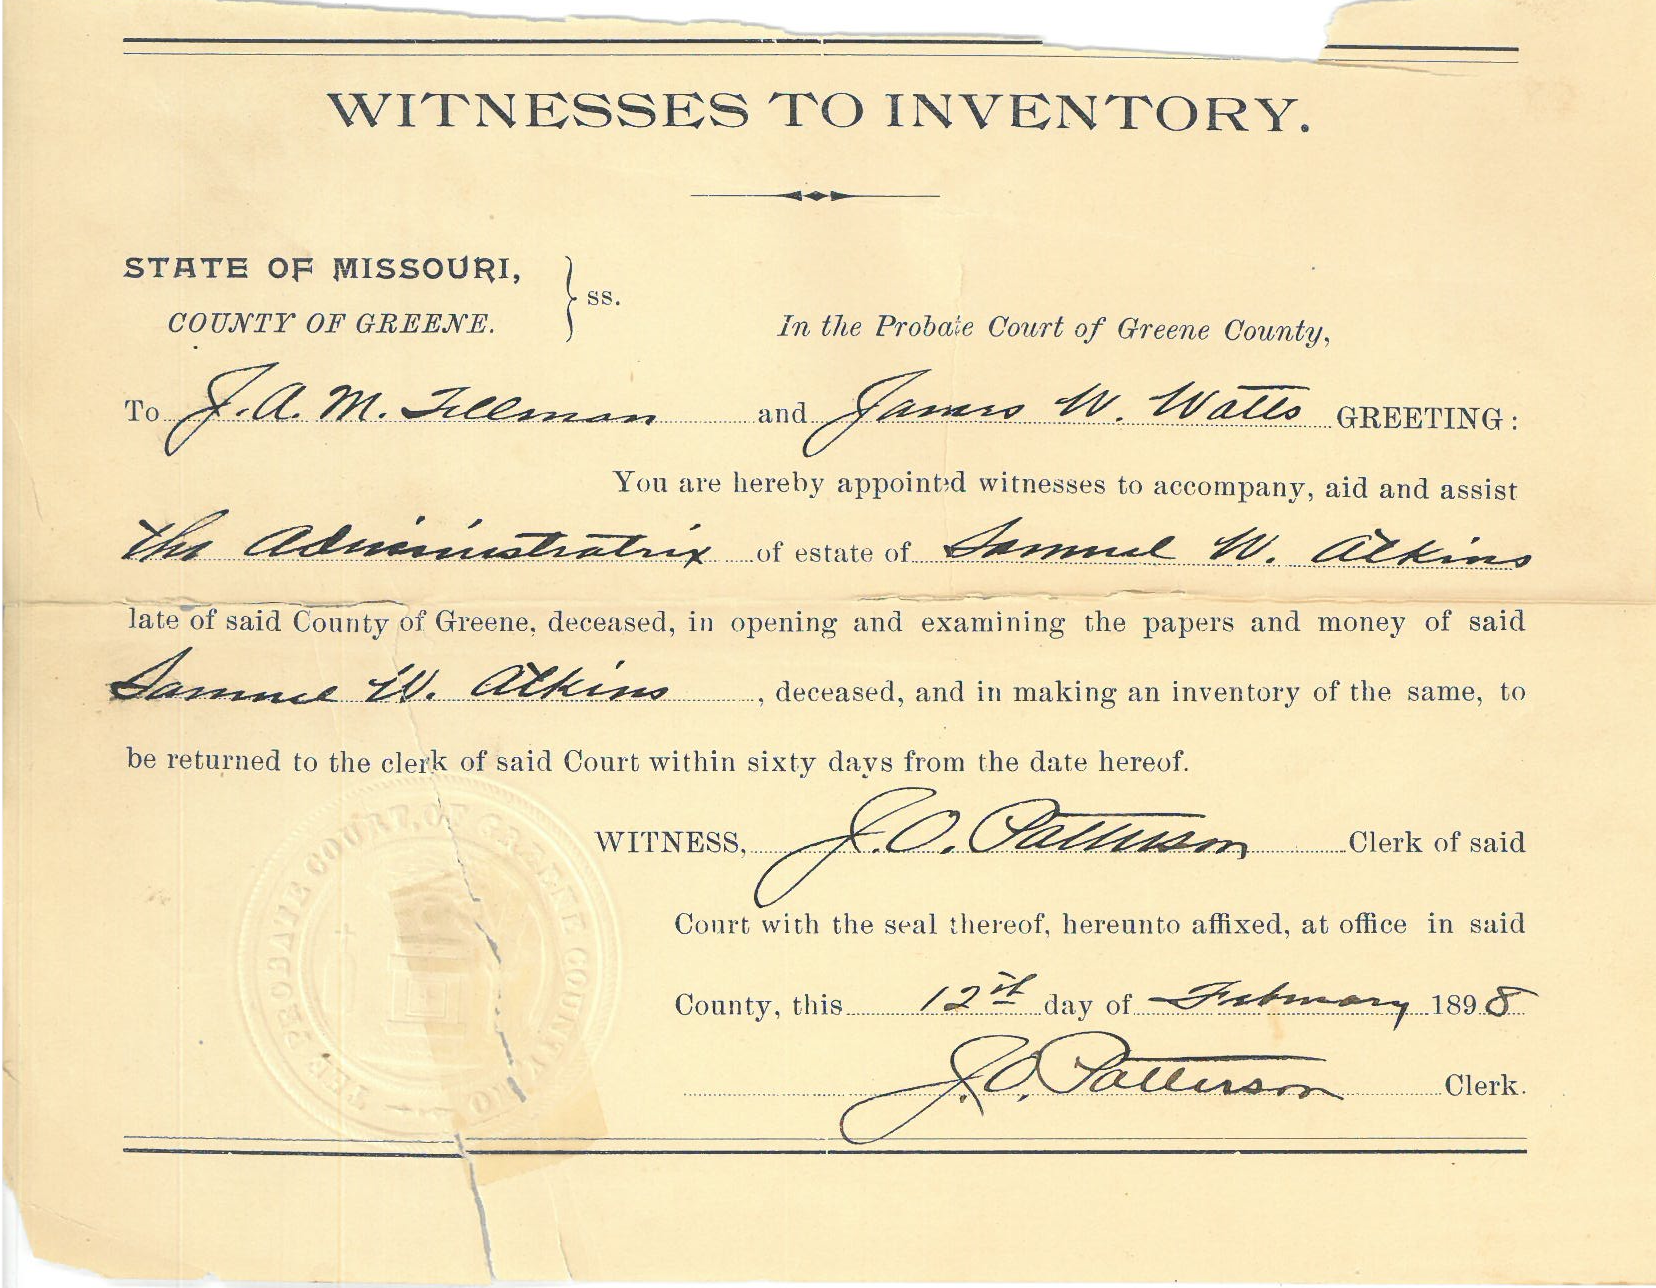 WITNESSES TO INVENTORY.
STATE OF MISSOURI,
COUNTY OF GREENE.
} ss.
In the Probate Court of Greene County,
To J. A. M. Tillman and James W. Watts GREETING:
You are hereby appointed witnesses to accompany, aid and assist
the Administratrix of estate of Samuel W. Atkins
late of said County of Greene, deceased, in opening and examining the papers and money of said
Samuel W. Atkins, deceased, and in making an inventory of the same, to
be returned to the clerk of said Court within sixty days from the date hereof.
WITNESS, J. O. Patterson Clerk of said
Court with the seal thereof, hereunto affixed, at office in said
County, this 12th day of February 1898
J. O. Patterson Clerk.
THE PROBATE COURT, OF GREENE COUNTY, MO